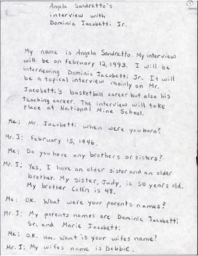 Angela Sandretto's
interview with
Dominic Jacobetti Jr.
My name is Angela Sandretto. My interview
will be on February 12, 1993. I will be
interviewing Dominic Jacobetti Jr. It will
be a topical interview mainly on Mr.
Jacobetti's basketball career but also his
teaching career. The interview will take
place at National Mine School.
Me: Mr. Jacobetti when were you born?
Mr. J: February 12, 1946.
Me: Do you have any brothers or sisters?
Mr. J: Yes, I have an older sister and an older
brother. My sister, Judy, is 50 years old.
My brother Collin is 48.
Me: O.K. What were your parents names?
Mr. J: My parents names are Dominic Jacobetti
Sr. and Marie Jacobetti.
Me: O.K. um. What is your wifes name?
Mr. J: My wifes name is Debbie.